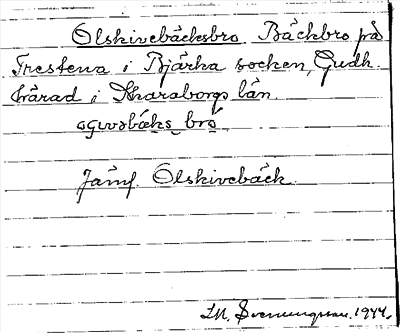 Olskivebäcksbro. Bäckbro på
Trestena i Bjärka socken, Gudh.
härad i Skaraborgs län.
bro
Jämf. Olskivebäck.
Svenungsson. 1944.